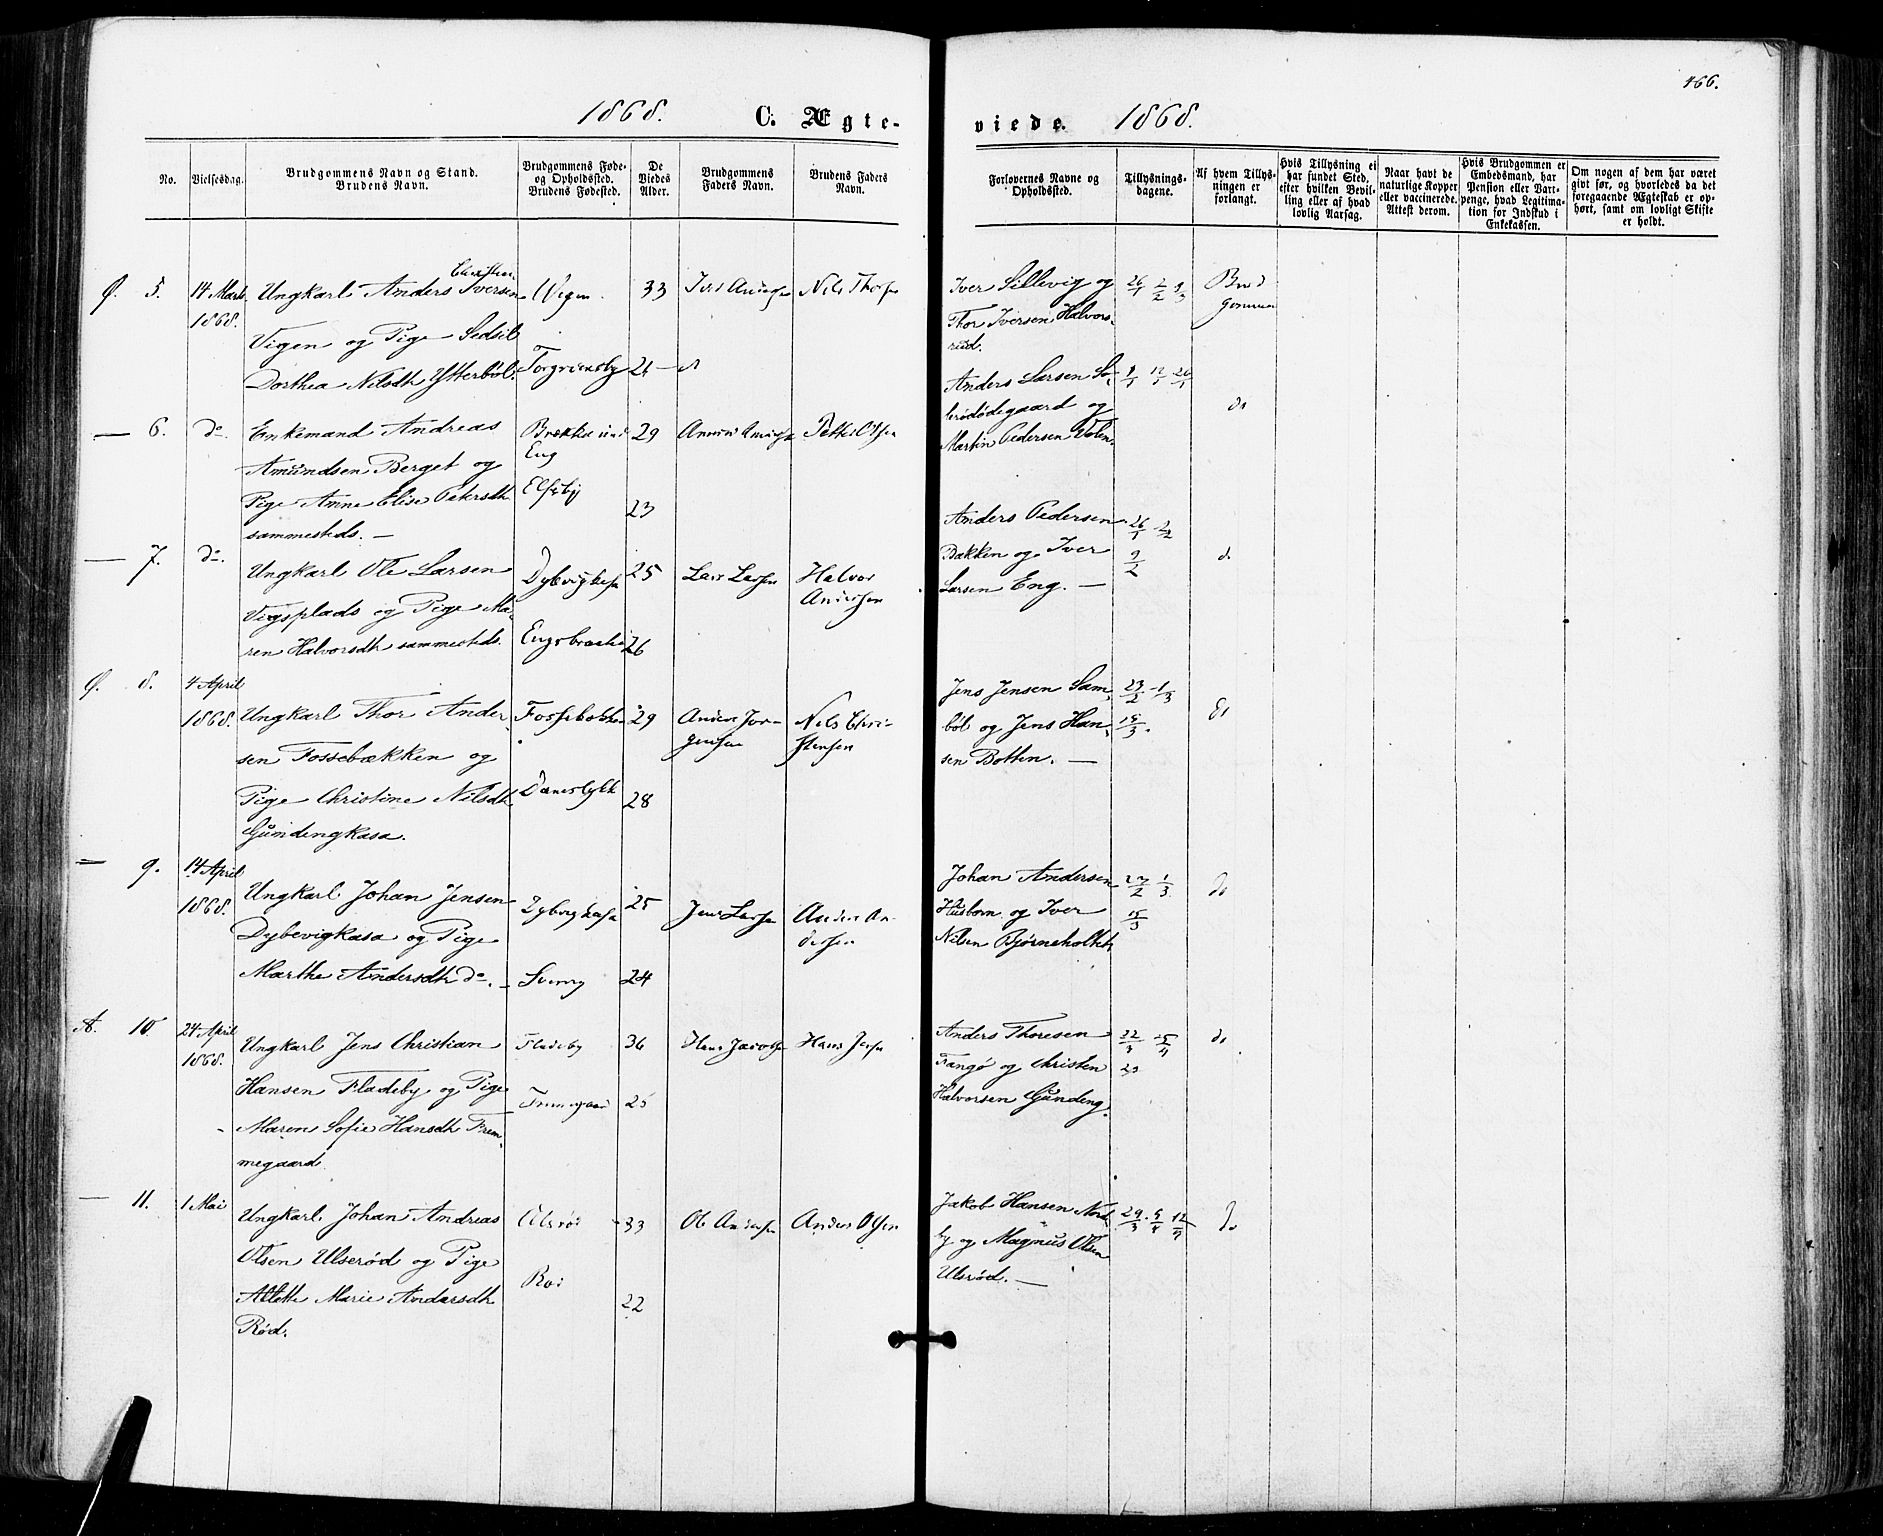 466.
1868. C. Ægte-
viede. 1868.
No.
Vielsesdag.
Brudgommens Navn og Stand.
Brudens Navn.
Brudgommens Føde-
og Opholdssted.
Brudens Fødested.
De
Viedes
Alder.
Brudgommens
Faders Navn.
Brudens Faders
Navn.
Forlovernes Navne og
Opholdssted.
Tillysnings-
dagene.
Af hvem Tillys-
ningen er
forlangt.
Hvis Tillysning ei
har fundet Sted,
efter hvilken Bevil-
ling eller af hvad
lovlig Aarsag.
Naar havt de
naturlige Kopper
eller vaccinerede.
Attest derom.
Hvis Brudgommen er
Embedsmand, har
Pension eller Vart-
penge, hvad Legitima-
tion for Indskud i
Enkekassen.
Om nogen af dem har været
givt før, og hvorledes da det
foregaaende Ægteskab er op-
hørt, samt om lovligt Skifte
er holdt.
Ø. 5.
14 Marts
1868.
Christen
Ungkarl Anders Iversen
Vigen og Pige Sedsil
Dorthea Nilsdtr Ytterbøl.
Vigen
33
Nils Thorsen
26
Iver Sillevig og
Thor Iversen Halvors-
rød.
26/1 2/2 9/2
Brud
gommen
— 6.
do.
Enkemand Andreas
Amundsen Berget og
Pige Anne Elise Petersdtr
sammesteds. —
Brække und
Eng
Elseby
29
23
Petter Olsen
Anders Larsen
og
Martin Pedersen
do
— 7.
do.
Ungkarl Ole Larsen
Vigsplads og Pige Ma-
ren Halvorsdtr sammesteds.
Dybevigkasa
Engsbraaten
25
26
Lars Larsen
Halvor
Andersen
Anders Pedersen
Bakken og Iver
Larsen Eng. —
26/1 2/2
9/2
do
Ø. 8.
4 April
1868.
Ungkarl Thor Ander-
sen Fossebækken og
Pige Christine Nilsdtr
Gundengkasa.
Fossebækken
29
28
Anders Jør-
gensen
Nils Chri-
stensen
Jens Jensen Sam-
bøl og Jens Han-
sen Botten. —
23/2 1/3
15/3
do
— 9.
14 April
1868.
Ungkarl Johan Jensen
Dybevigkasa og Pige
Marthe Andersdtr do. —
Dybevigkasa
25
24
Jens Larsen
Anders An-
dersen
Johan Andersen
Husborn og Iver
Nilsen Bjørneholtet
23/2 1/3
15/3
do
A. 10
24 April
1868.
Ungkarl Jens Christian
Hansen Fladeby og Pige
Maren Sofie Hansdtr Frem-
megaard.
Fladeby
Fremmegaard
36
25
Hans Jacobsen
Hans
Anders Thoresen
Tangø og Christen
Halvorsen Gundeng.
22/3 5/4
29
do
— 11.
1 Mai
Ungkarl Johan Andreas
Olsen Ulserød og Pige
Alette Marie Andersdtr
Rød.
Ulsrød
Rød
33
22
Ole Andersen
Anders Olsen
Jakob Hansen Nord-
by og Magnus Olsen
Ulsrød. —
29/3 5/4 12/4
do